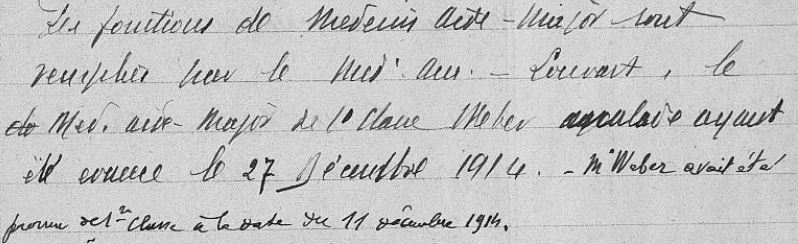 Les fonctions de Medecin Aide-Major sont
remplies par le Med. Aux. - Louvart, le
Med. aide-Major de 1e Classe Weber malade ayant
été évacué le 27 Décembre 1914. - Mr Weber avait été
promu de 1re Classe à la date du 11 décembre 1914.